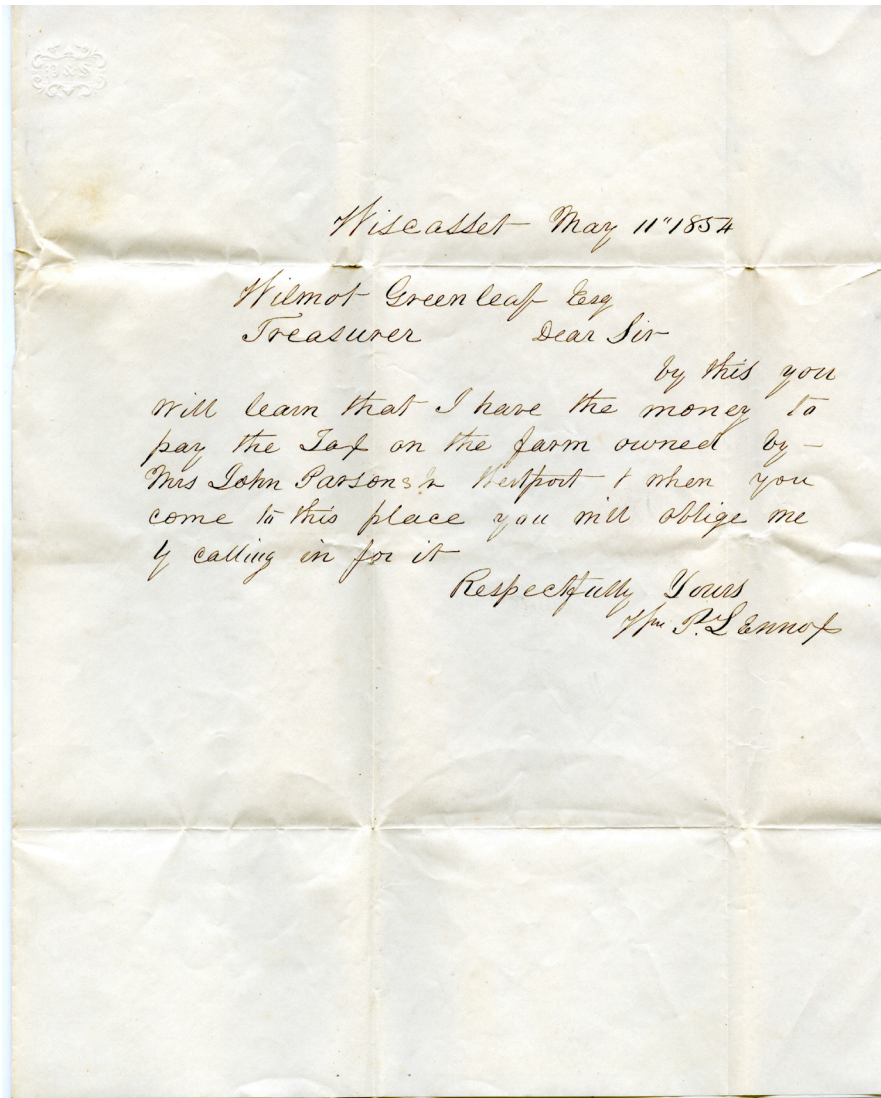 Wiscasset May 11" 1854
Wilmot Greenleaf Esq
Treasurer Dear Sir
by this you
will learn that I have the money to
pay the Tax on the farm owned by
Mrs John Parsons Westport & when you
come to this place you will oblige me
by calling in for it
Respectfully Yours
Wm P. Lennox